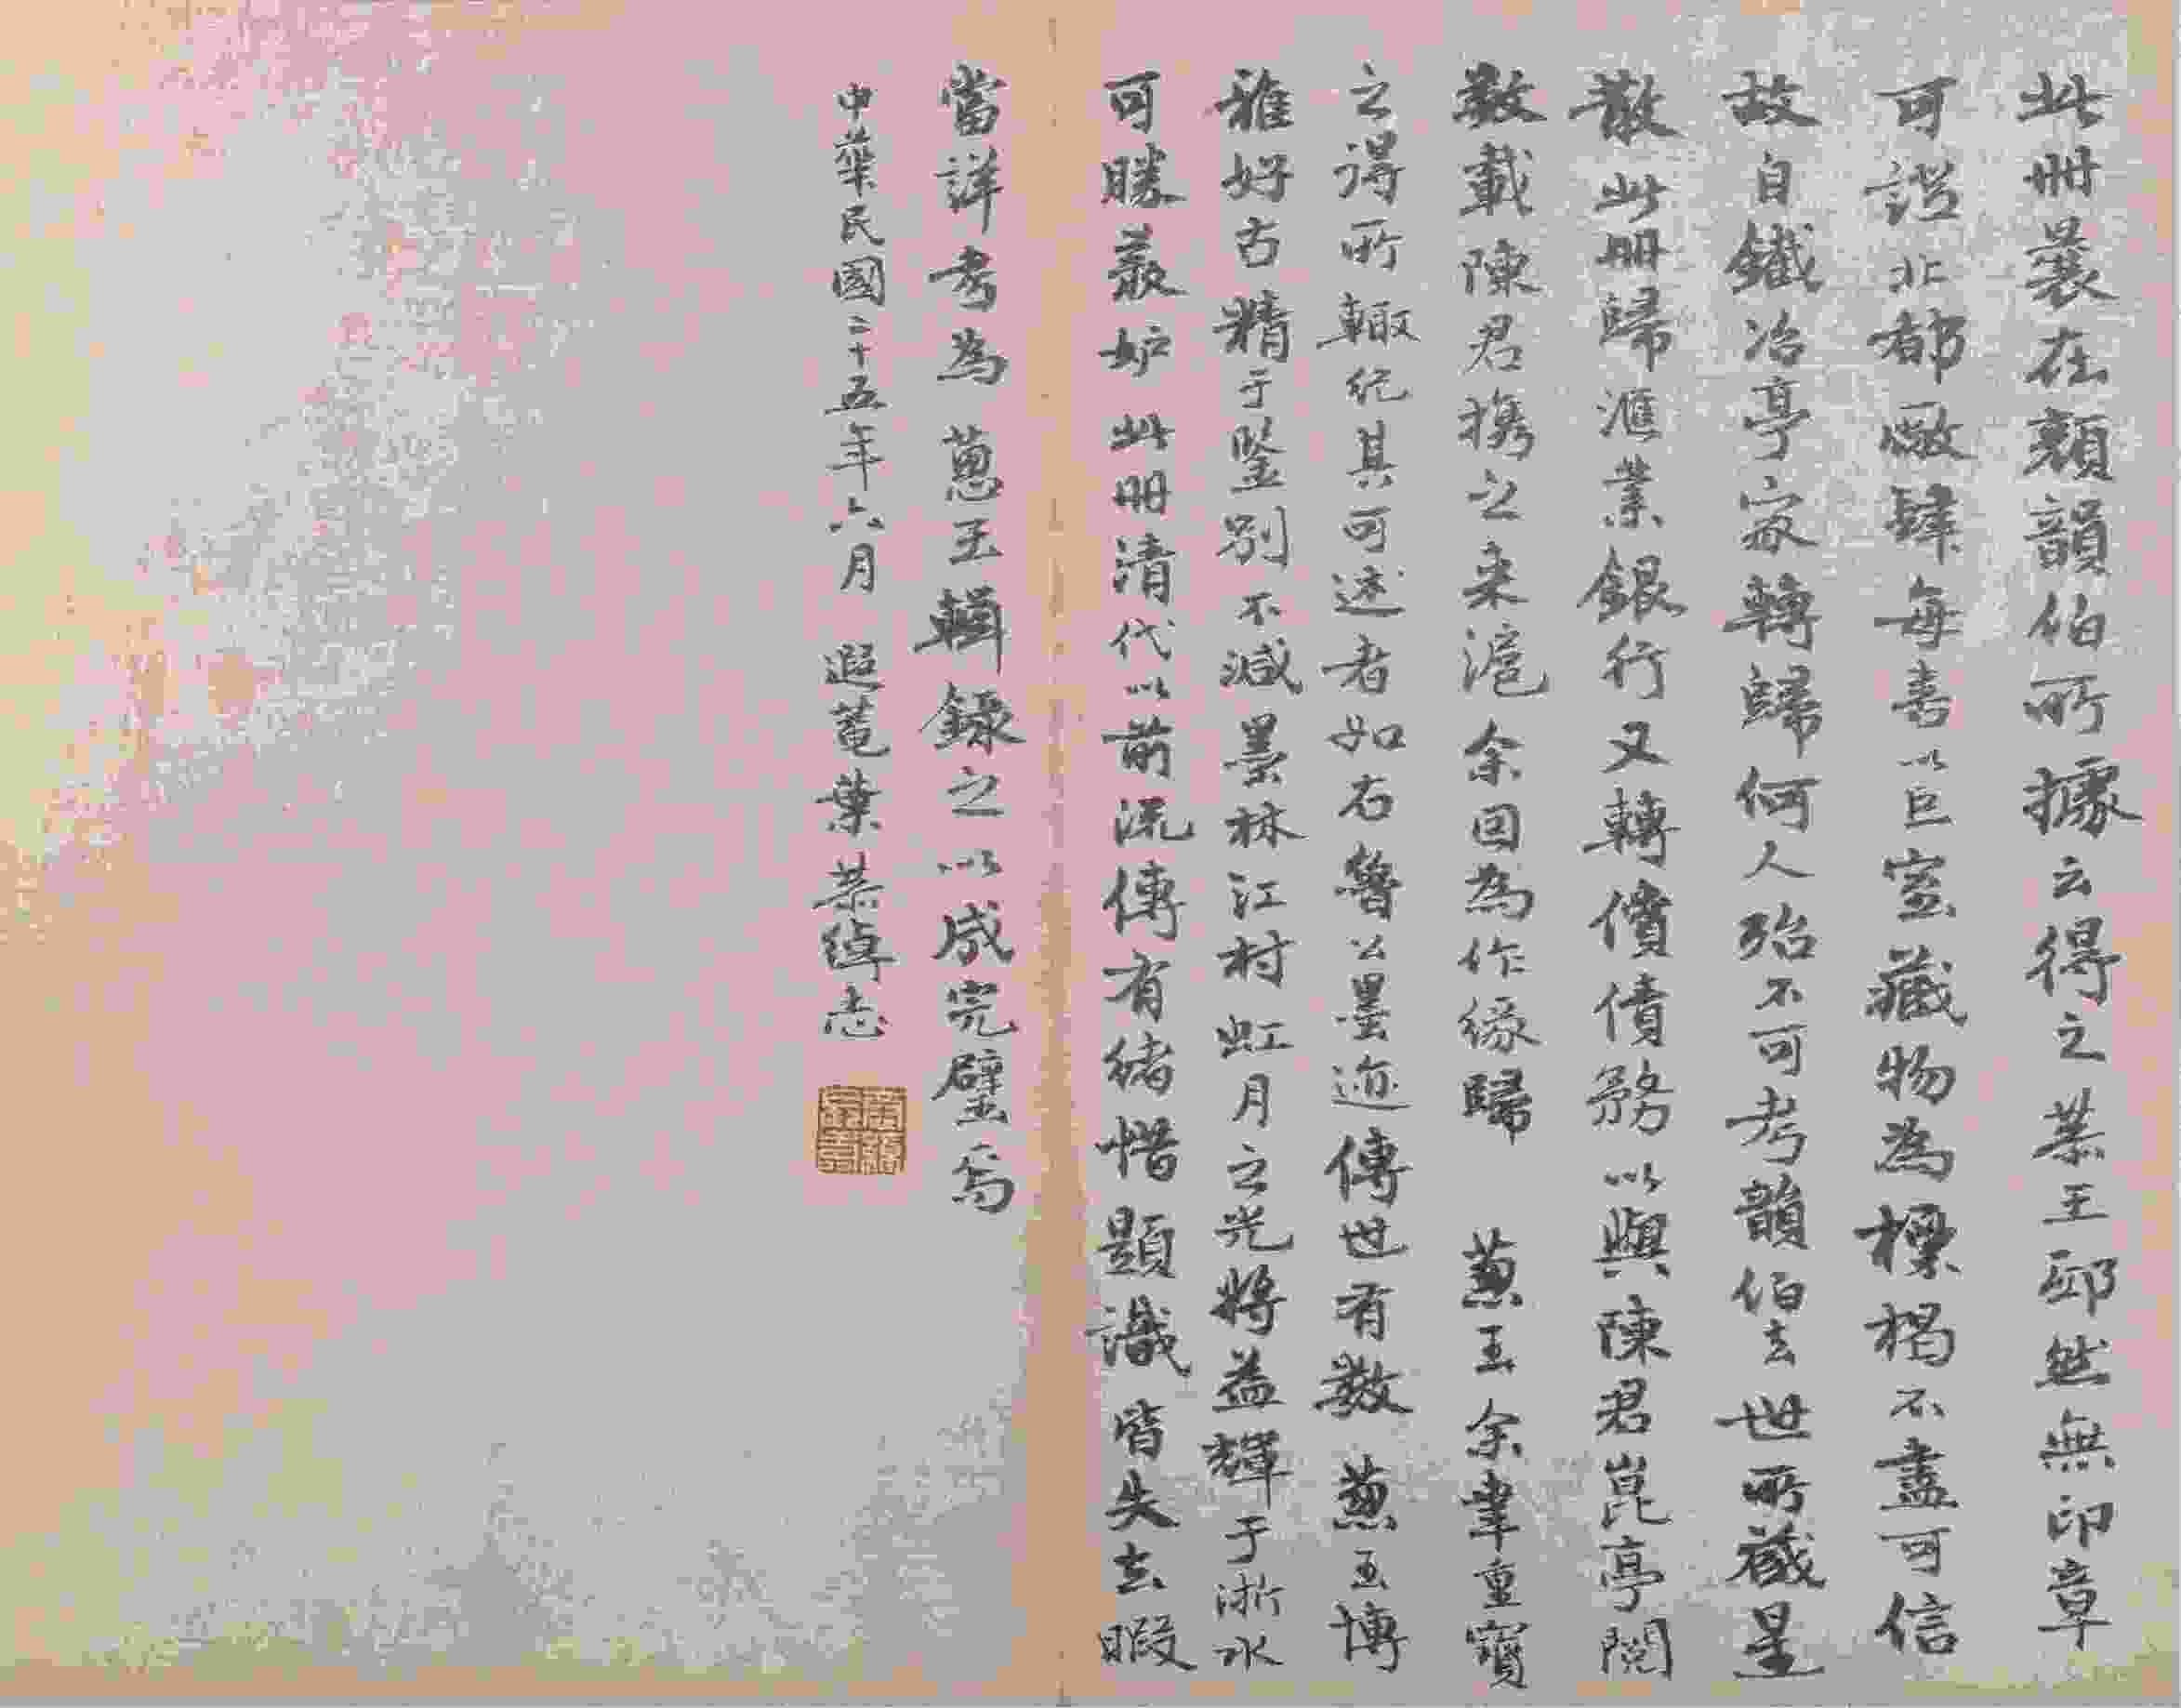 此冊曩在顏韻伯所據云得之恭王邸然無印章
可證北都廠肆每喜以巨室藏物為標榜不盡可信
故自鐵冶亭家轉歸何人殆不可考韻伯去世所藏星
散此冊歸滙業銀行又轉償債務以與陳君崑亭閱
數載陳君攜之来滬余因為作緣歸 蔥玉余韋重寶
之得所輒紀其可述者如右魯公墨迹傳世有數蔥玉博
雅好古精于鑒別不減墨林江村虹月之光將益輝于浙水
可勝羨妒此冊清代以前流傳有緒惜題識皆失去暇
當詳考為 蔥玉輯錄之以成完璧焉
中華民國二十五年六月 遐菴葉恭綽志